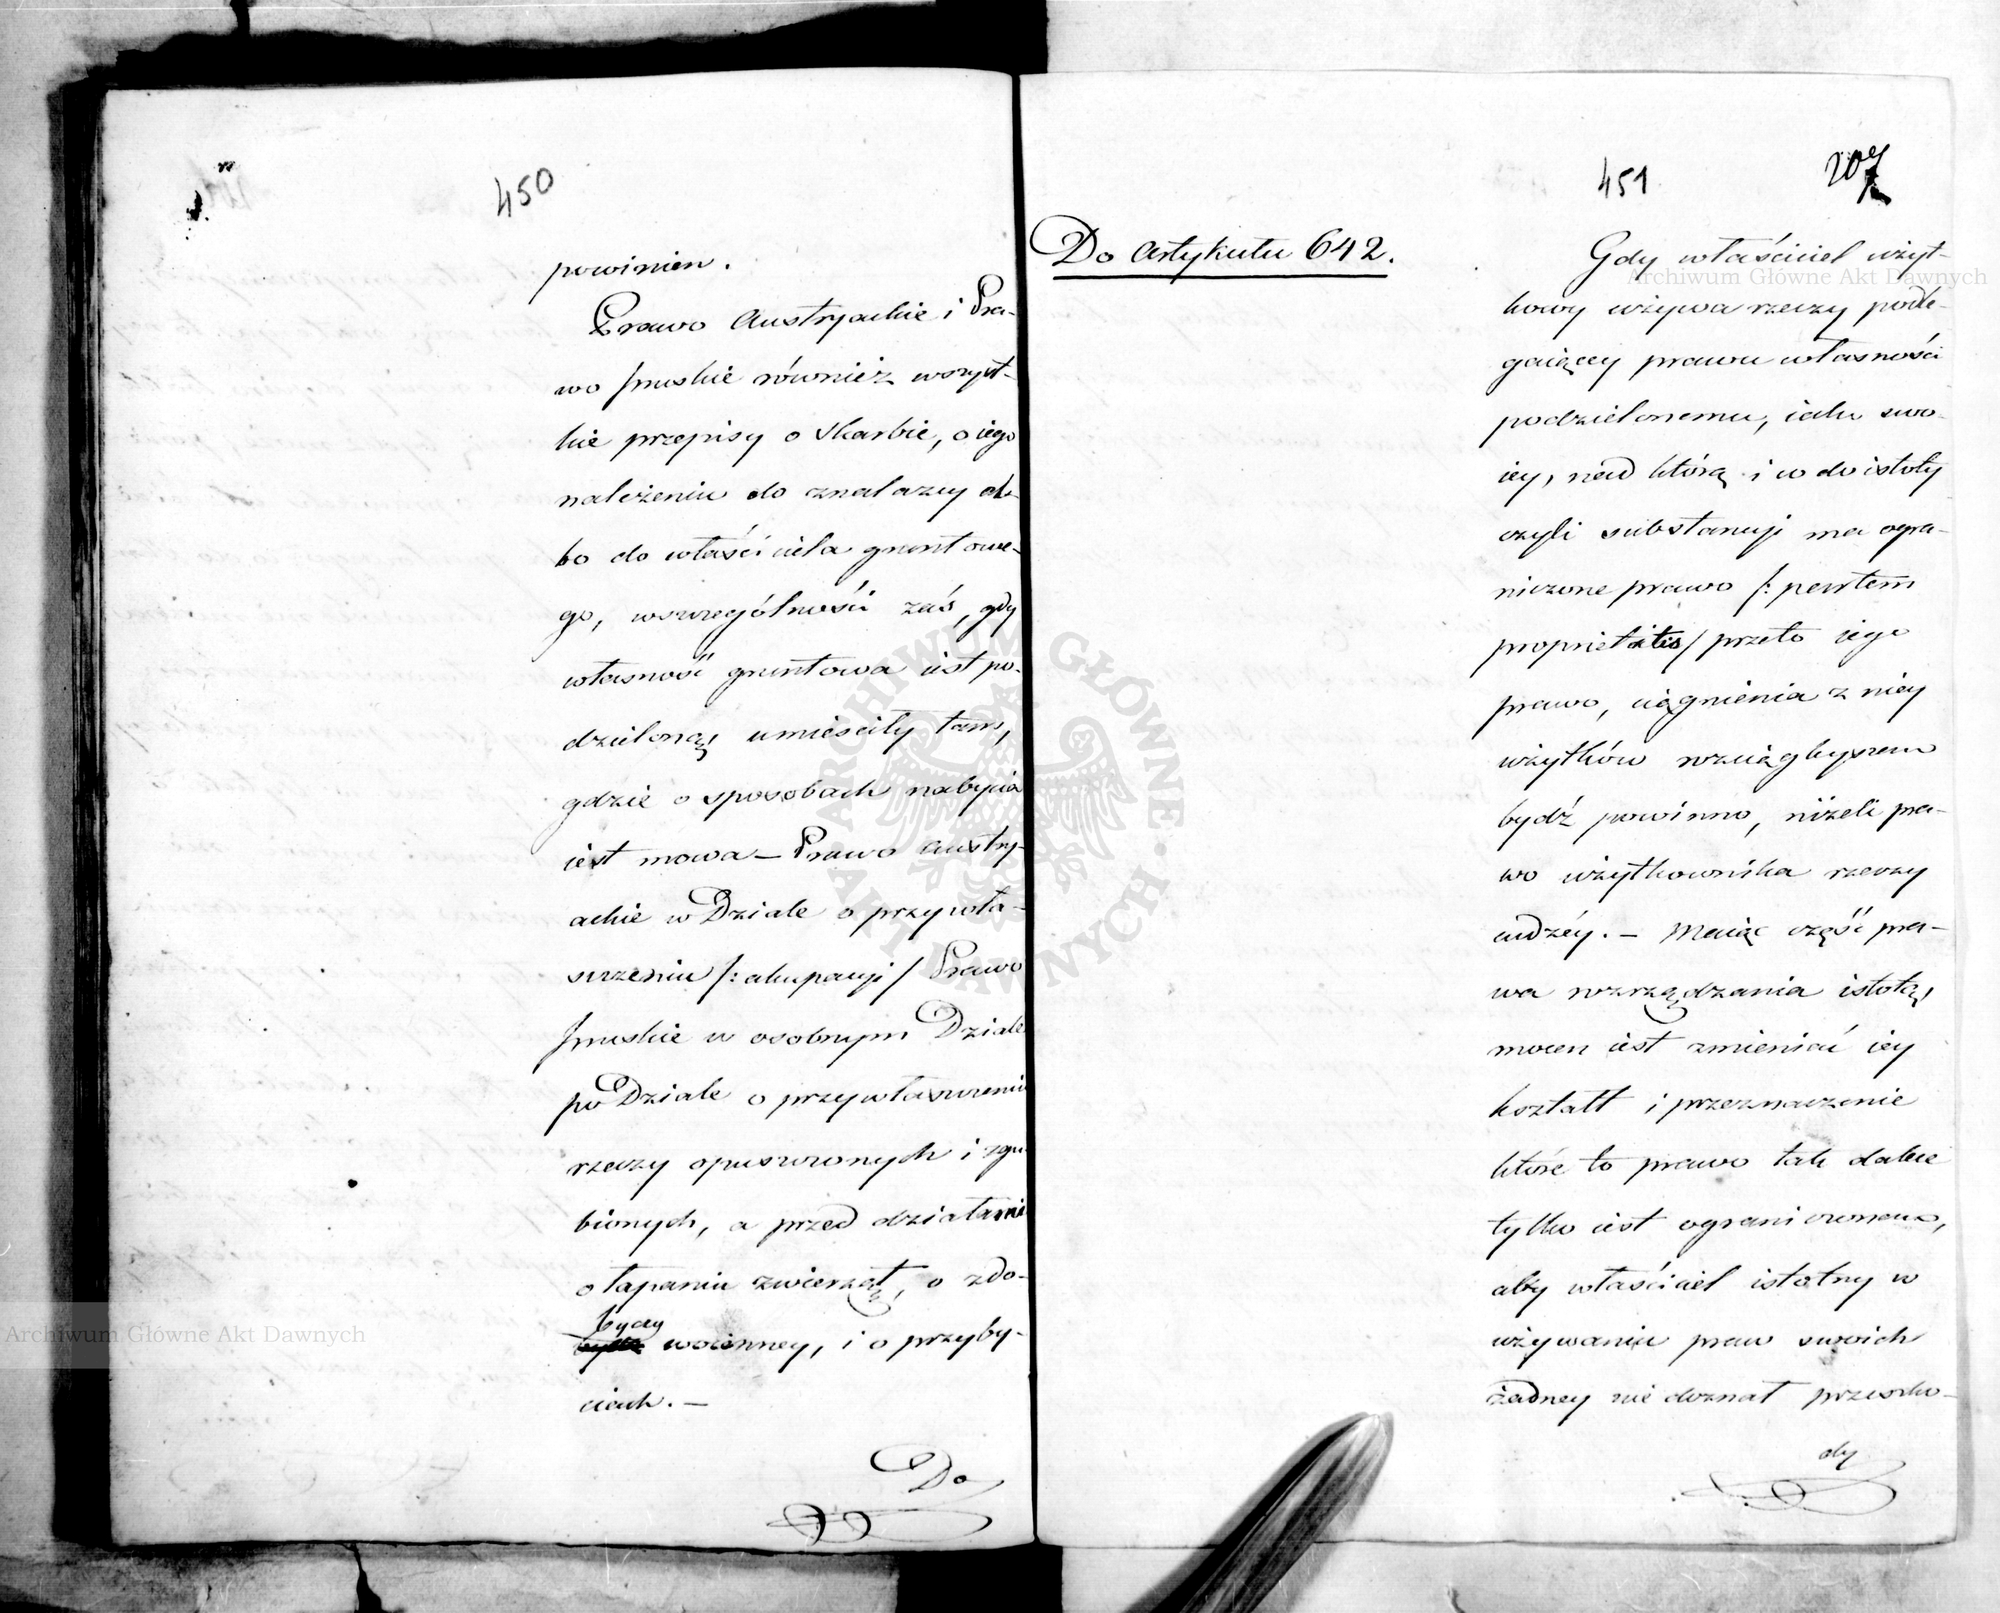 450
powinien.
Prawo Austryackie i Pra-
wo pruskie również wszyst-
kie przepisy o skarbie, o iego
należeniu do znalazcy al-
bo do właściciela grontowe-
go, wszczególności zaś, gdy
własność grontowa iest po-
dzieloną, umieściły tam,
gdzie o sposobach nabycia
iest mowa – Prawo Austry-
ackie w Dziale o przywła-
szczeniu /: akupacyi / Prawo
pruskie w osobnym Dziale
po Dziale o przywłaszczeniu
rzeczy opuszczonych i zgu-
bionych, a przed działami
o łapaniu zwierząt, o zdo-
byczy woienney, i o przyby-
ciach. –
Do
451
207
Do Artykułu 642.
Gdy właściciel użyt-
kowy używa rzeczy podle-
gaiącey prawu własności
podzielonemu, iako swo-
iey, nad którą i w do istoty
czyli substancyi ma ogra-
niczone prawo /: partem
proprietatis / przeto iego
prawo, ciągnienia z niey
użytków rozciąglyszem
bydź powinno, niżeli pra-
wo użytkownika rzeczy
cudzéy. – Maiąc część pra-
wa rozrządzania istotą,
mocen iest zmieniać iey
kształt i przeznaczenie
które to prawo tak dalece
tylko iest ograniczonem,
aby właściciel istotny w
używaniu praw swoich
żadney nie doznał przeszko-
dy
Archiwum Główne Akt Dawnych
Archiwum Główne Akt Dawnych
ARCHIWUM GŁÓWNE AKT DAWNYCH